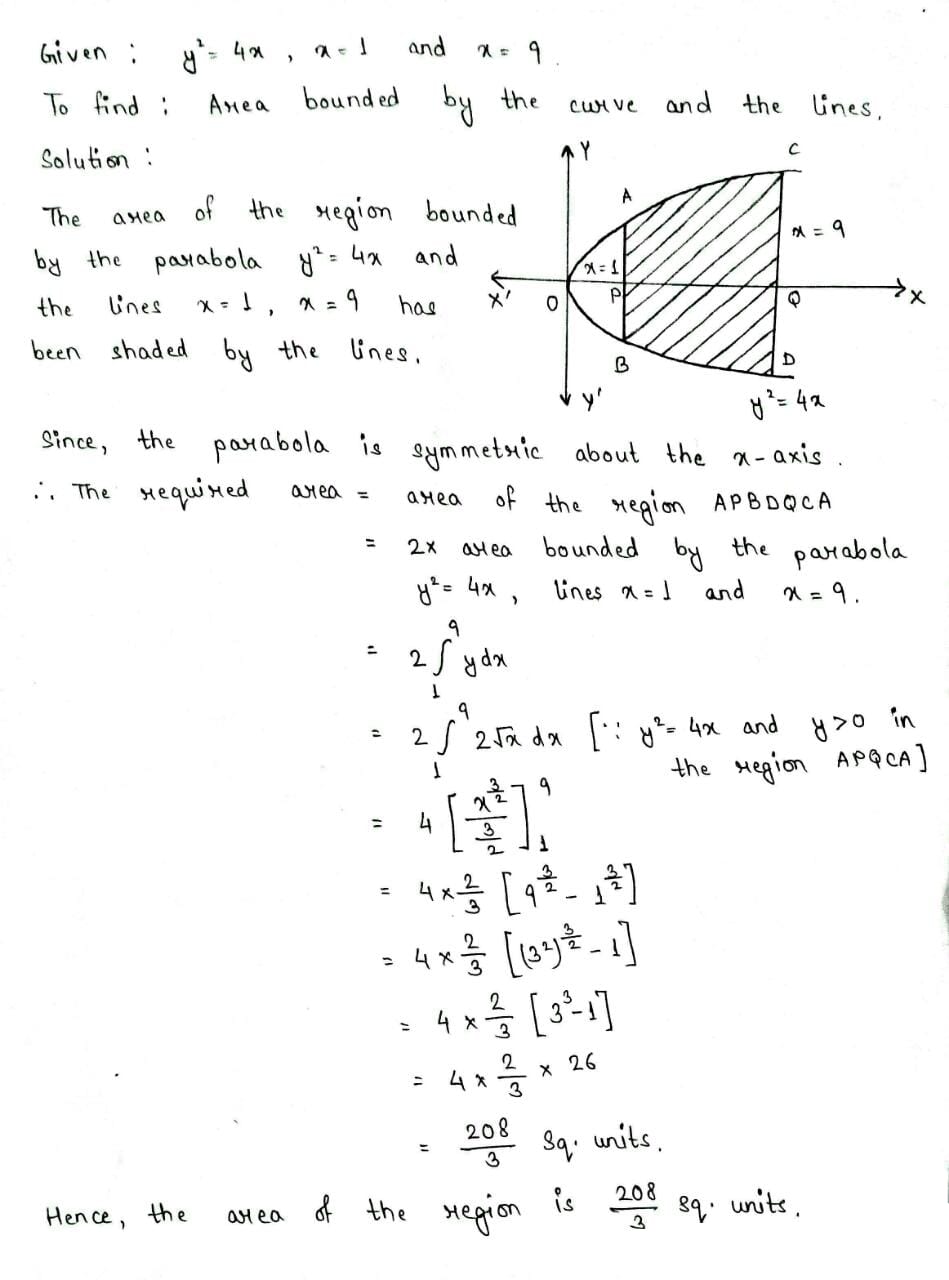 Given : y² = 4x , x = 1 and x = 9 .
To find : Area bounded by the curve and the lines.
Solution :
The area of the region bounded
by the parabola y² = 4x and
the lines x = 1 , x = 9 has
been shaded by the lines.
Y
C
A
x = 9
x = 1
X'
O
P
Q
X
B
D
Y'
y² = 4x
Since, the parabola is symmetric about the x-axis .
∴ The required area = area of the region APBDQCA
= 2x area bounded by the parabola
y² = 4x , lines x = 1 and x = 9 .
= 2 ∫₁⁹ y dx
= 2 ∫₁⁹ 2√x dx [∵ y² = 4x and y > 0 in
the region APQCA]
= 4 [x^(3/2) / (3/2)]₁⁹
= 4 × 2/3 [9^(3/2) - 1^(3/2)]
= 4 × 2/3 [(3²)^(3/2) - 1]
= 4 × 2/3 [3³ - 1]
= 4 × 2/3 × 26
= 208/3 sq. units.
Hence, the area of the region is 208/3 sq. units.